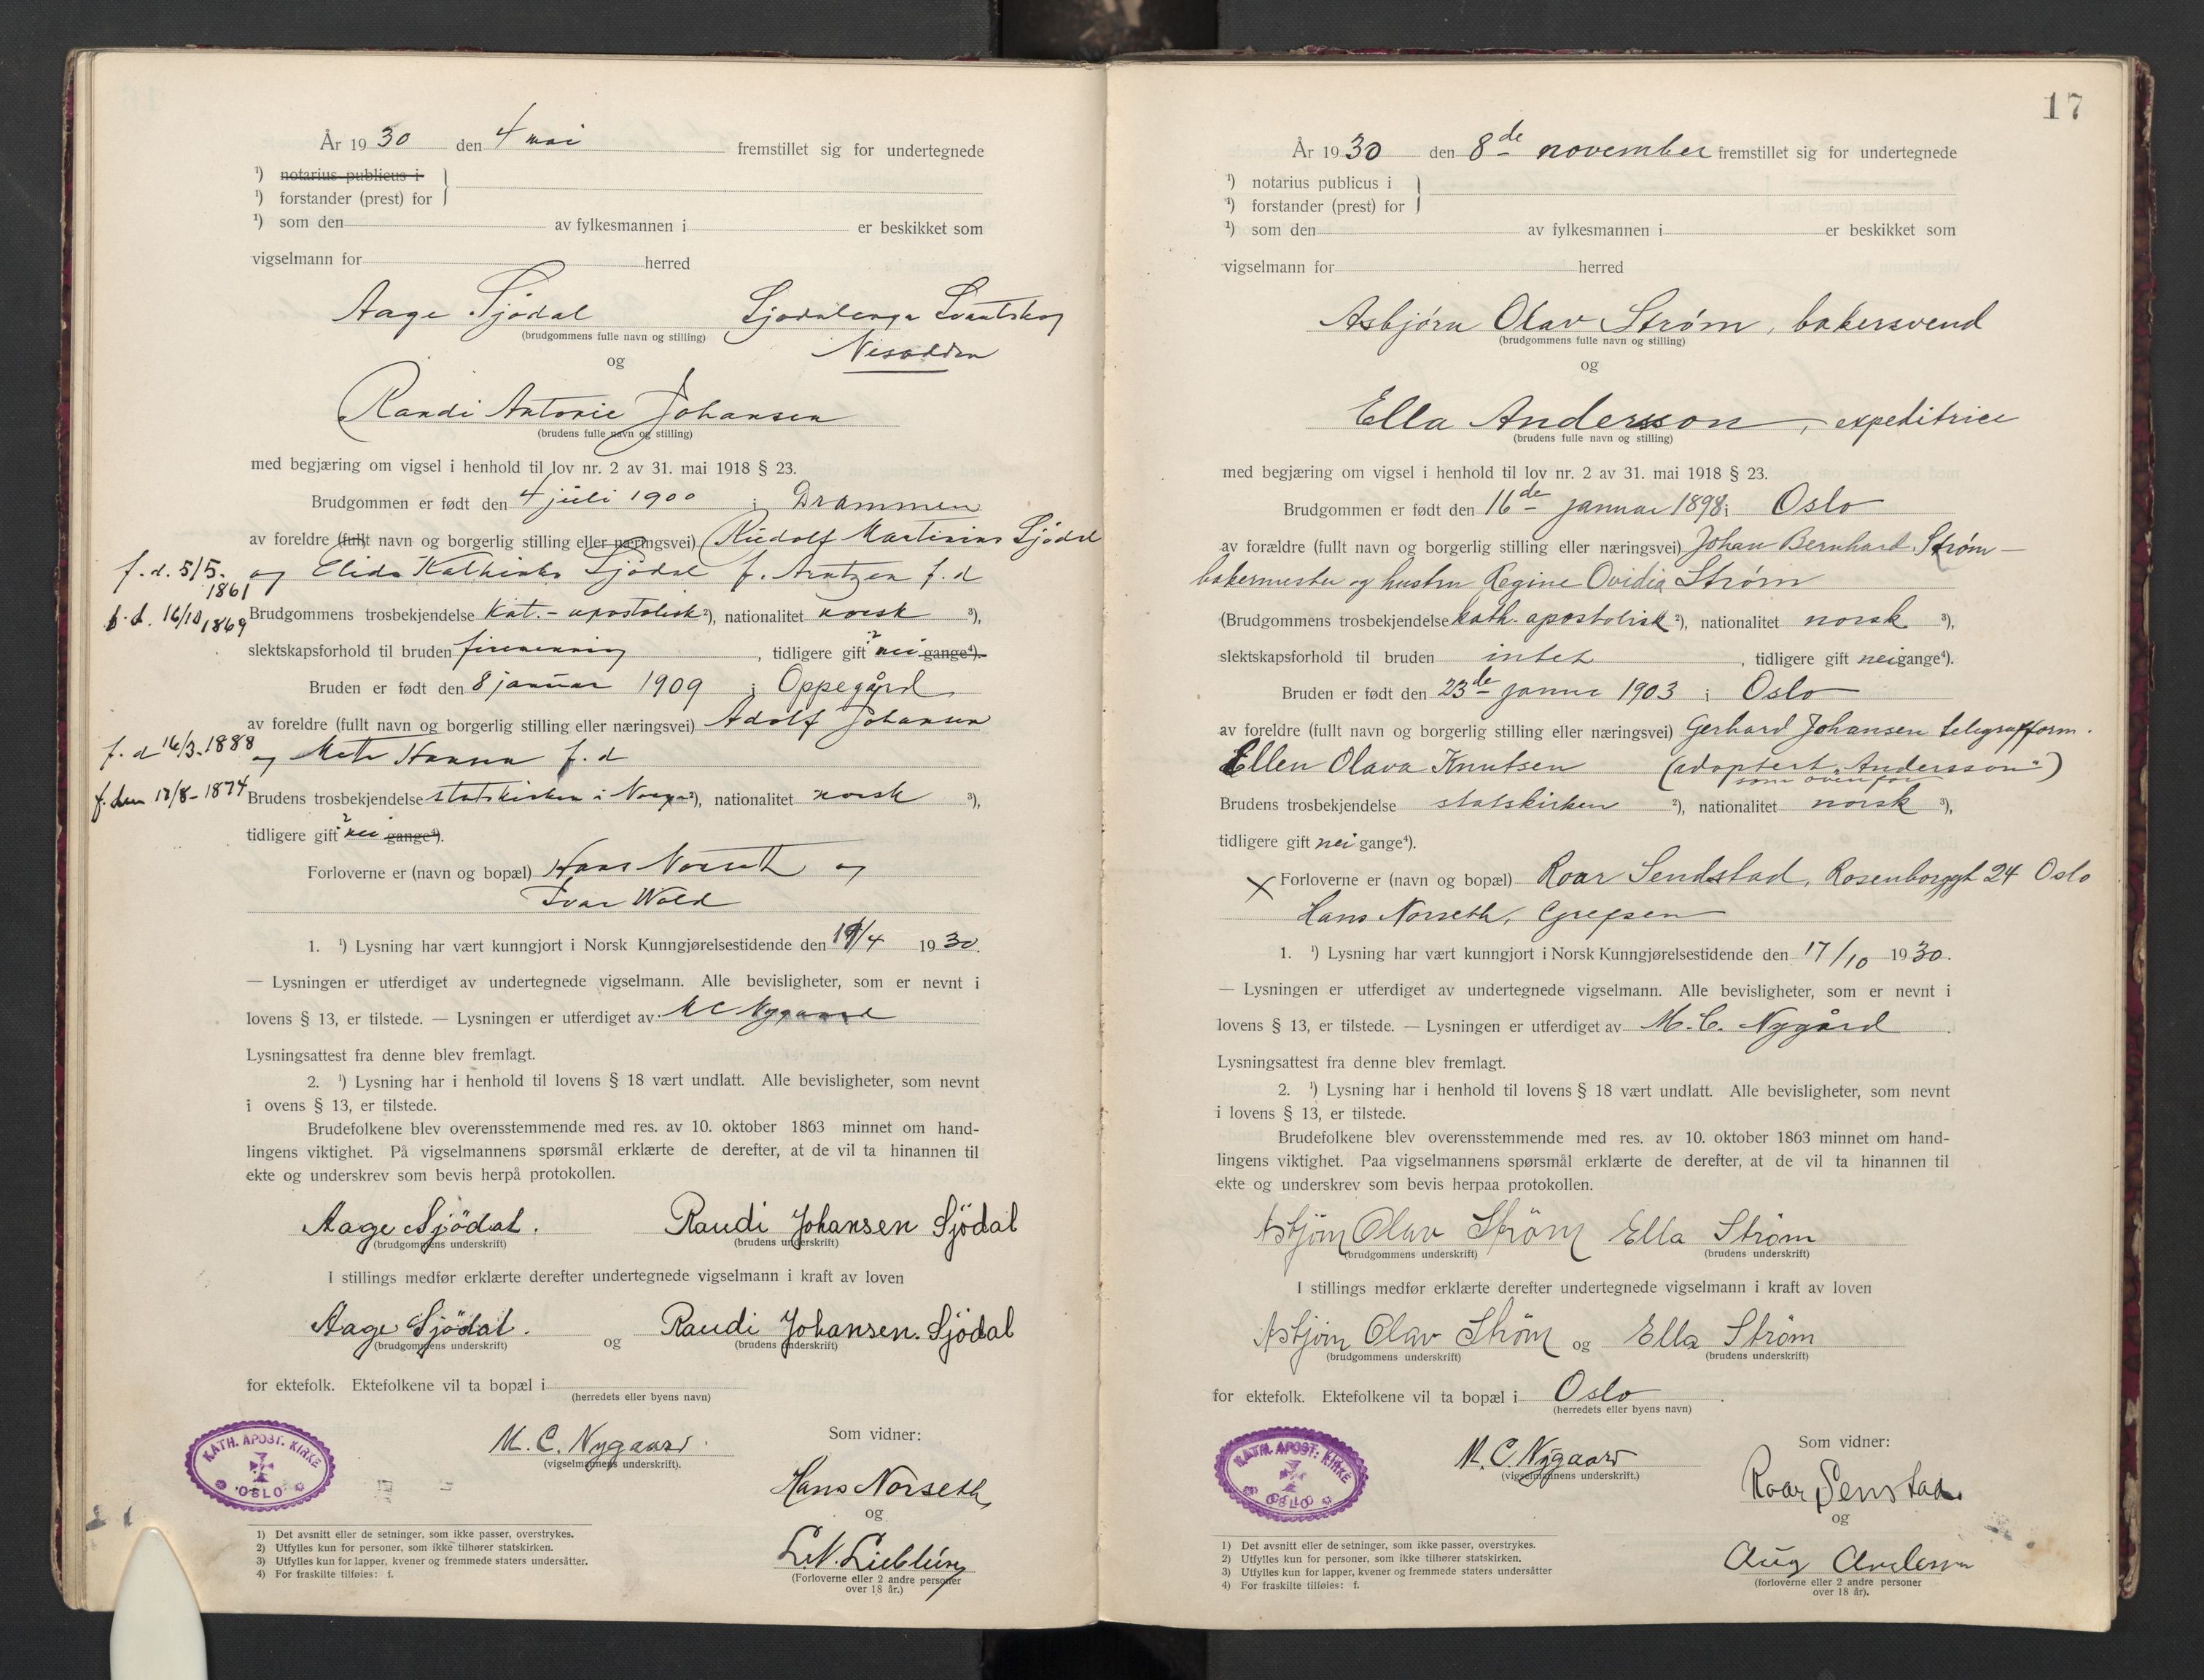 År 1930 den 4 mai fremstillet sig for undertegnede
¹) notarius publicus i
¹) forstander (prest) for
¹) som den av fylkesmannen i er beskikket som
vigselmann for herred
Aage Sjödal
(brudgommens fulle navn og stilling)
Nesodden
og
Randi Antonie Johansen
(brudens fulle navn og stilling)
med begjæring om vigsel i henhold til lov nr. 2 av 31. mai 1918 § 23.
Brudgommen er født den 4 juli 1900 i Drammen
av foreldre (fullt navn og borgerlig stilling eller næringsvei) Rudolf Martinius Sjödal
f. d. 5/5. 1861 og Elida Kathinka Sjödal f. Arntzen f. d
f. d. 16/10 1869 Brudgommens trosbekjendelse Kat. - apostolisk ²), nationalitet norsk ³),
slektskapsforhold til bruden firemenning, tidligere gift nei gange⁴).
Bruden er født den 8 januar 1909 i Oppegård
av foreldre (fullt navn og borgerlig stilling eller næringsvei) Adolf Johansen
f. d 16/3-1888 og Hansen f. d
f. den 17/8-1874 Brudens trosbekjendelse statskirken i Norge ²), nationalitet norsk ³),
tidligere gift nei gange⁴).
Forloverne er (navn og bopæl) Hans Norseth og
Ivar Wold
1. ¹) Lysning har vært kunngjort i Norsk Kunngjørelsestidende den /4 1930.
— Lysningen er utferdiget av undertegnede vigselmann. Alle bevisligheter, som er nevnt i
lovens § 13, er tilstede. — Lysningen er utferdiget av M C Nygaard
Lysningsattest fra denne blev fremlagt.
2. ¹) Lysning har i henhold til lovens § 18 vært undlatt. Alle bevisligheter, som nevnt
i ovens § 13, er tilstede.
Brudefolkene blev overensstemmende med res. av 10. oktober 1863 minnet om hand-
lingens viktighet. På vigselmannens spørsmål erklærte de derefter, at de vil ta hinannen til
ekte og underskrev som bevis herpå protokollen.
Aage Sjödal. Randi Johansen Sjödal
(brudgommens underskrift) (brudens underskrift)
I stillings medfør erklærte derefter undertegnede vigselmann i kraft av loven
Aage Sjödal. og Randi Johansen. Sjödal
(brudgommens underskrift) (brudens underskrift)
for ektefolk. Ektefolkene vil ta bopæl i
(herredets eller byens navn)
KATH. APOST. KIRKE OSLO
M. C. Nygaard.
(vigselmannens underskrift).
Som vidner:
Hans Norseth
og
(Forloverne eller 2 andre personer
over 18 år.)
1) Det avsnitt eller de setninger, som ikke passer, overstrykes.
2) Utfylles kun for personer, som ikke tilhører statskirken.
3) Utfylles kun for lapper, kvener og fremmede staters undersåtter.
4) For fraskilte tilføies: f.
17
År 1930 den 8de november fremstillet sig for undertegnede
¹) notarius publicus i
¹) forstander (prest) for
¹) som den av fylkesmannen i er beskikket som
vigselmann for herred
Asbjörn Olav Strøm, bakersvend
(brudgommens fulle navn og stilling)
og
Ella Andersson, expeditrice
(brudens fulle navn og stilling)
med begjæring om vigsel i henhold til lov nr. 2 av 31. mai 1918 § 23.
Brudgommen er født den 16de januar 1898 i Oslo
av forældre (fullt navn og borgerlig stilling eller næringsvei) Johan Bernhard Strøm —
bakermester og hustru Regine Ovidia Strøm
(Brudgommens trosbekjendelse kath. apostolisk ²), nationalitet norsk ³),
slektskapsforhold til bruden intet, tidligere gift nei gange⁴).
Bruden er født den 23de 1903 i Oslo
av foreldre (fullt navn og borgerlig stilling eller næringsvei) Gerhard Johansen telegrafform.
Ellen Olava Knutsen (adoptert "Andersson")
som ovenfor
Brudens trosbekjendelse statskirken ²), nationalitet norsk ³),
tidligere gift nei gange⁴).
X Forloverne er (navn og bopæl) Roar Sendstad, Rosenborggt 24 Oslo
Hans Norseth, Grefsen
1. ¹) Lysning har vært kunngjort i Norsk Kunngjørelsestidende den 17/10 1930.
— Lysningen er utferdiget av undertegnede vigselmann. Alle bevisligheter, som er nevnt i
lovens § 13, er tilstede. — Lysningen er utferdiget av M. C. Nygård.
Lysningsattest fra denne blev fremlagt.
2. ¹) Lysning har i henhold til lovens § 18 vært undlatt. Alle bevisligheter, som nevnt
i lovens § 13, er tilstede.
Brudefolkene blev overensstemmende med res. av 10. oktober 1863 minnet om hand-
lingens viktighet. Paa vigselmannens spørsmål erklærte de derefter, at de vil ta hinannen til
ekte og underskrev som bevis herpaa protokollen.
Asbjörn Olav Ström Ella Strøm
(brudgommens underskrift) (brudens underskrift)
I stillings medfør erklærte derefter undertegnede vigselmann i kraft av loven
Asbjörn Olav Ström og Ella Strøm
(brudgommens underskrift) (brudens underskrift)
for ektefolk. Ektefolkene vil ta bopæl i Oslo.
(herredets eller byens navn)
KATH. APOST. KIRKE OSLO
M. C. Nygaard
(vigselmannens underskrift.)
Som vidner:
Roar Senstad.
og
Aug Andersen
(forloverne eller 2 andre personer
over 18 år).
1) Det avsnitt eller de setninger, som ikke passer, overstrykes.
2) Utfylles kun for personer, som ikke tilhører statskirken.
3) Utfylles kun for lapper, kvener og fremmede staters undersåtter
4) For fraskilte tilføies: f.